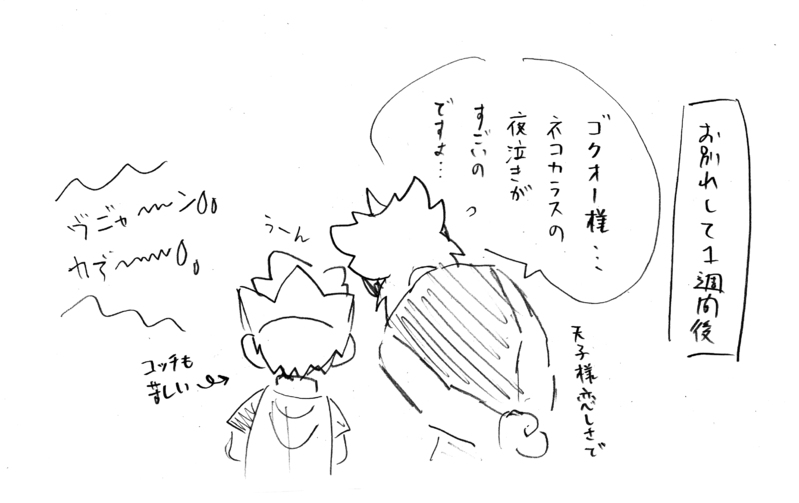 お別れして1週間後
ゴクオー様…
ネコカラスの
夜泣きが
すごいの
ですよ…
天子様恋しさで
うーん
ヴニャーン
カアー
コッチも
苦しい